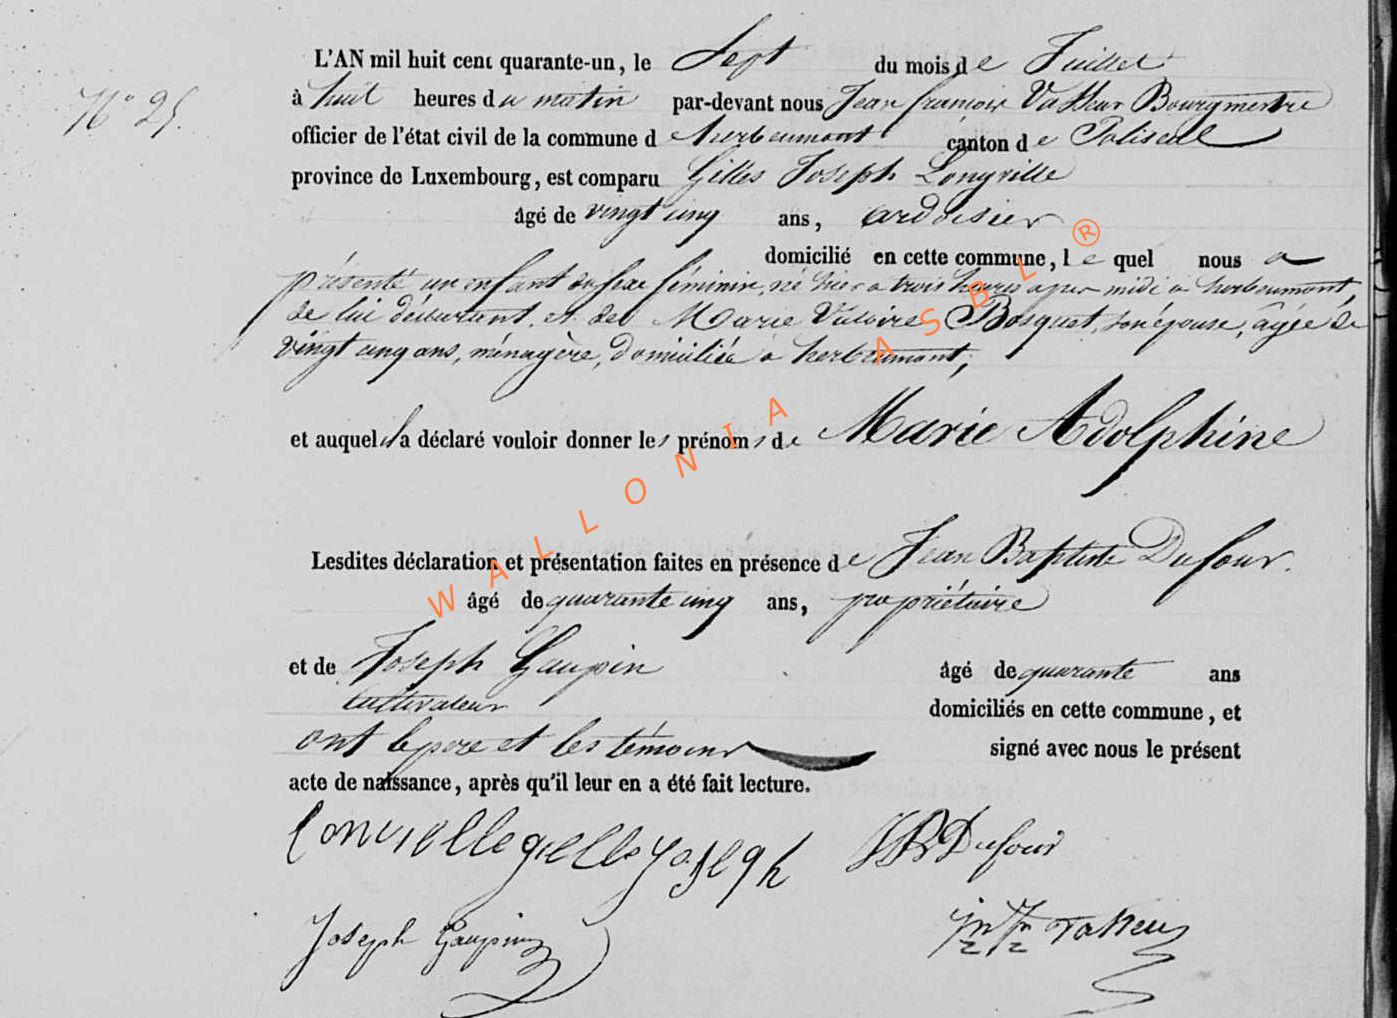 L'AN mil huit cent quarante-un, le Sept du mois de Juillet
N° 25.
à huit heures du matin par-devant nous Jean françois Vasseur Bourgmestre
officier de l'état civil de la commune de herbeumont canton de Paliseul
province de Luxembourg, est comparu Gilles Joseph Longville
âgé de vingt cinq ans, ardoisier
domicilié en cette commune, lequel nous a
présenté un enfant du sexe féminin, né hier a trois heures apres midi a herbeumont,
de lui déclarant, et de Marie Bosquet, son épouse, âgée de
vingt cinq ans, ménagère, domiciliée a herbeumont,
et auquel il a déclaré vouloir donner les prénoms de Marie Adolphine
Lesdites déclaration et présentation faites en présence de Jean Baptiste Dufour.
âgé de quarante cinq ans, propriétaire
et de Joseph Gaupin âgé de quarante ans
cultivateur
domiciliés en cette commune, et
ont le pere et les témoins signé avec nous le présent
acte de naissance, après qu'il leur en a été fait lecture.
Joseph JB Dufour
Joseph Gaupin
WALLONIA ASBL ®